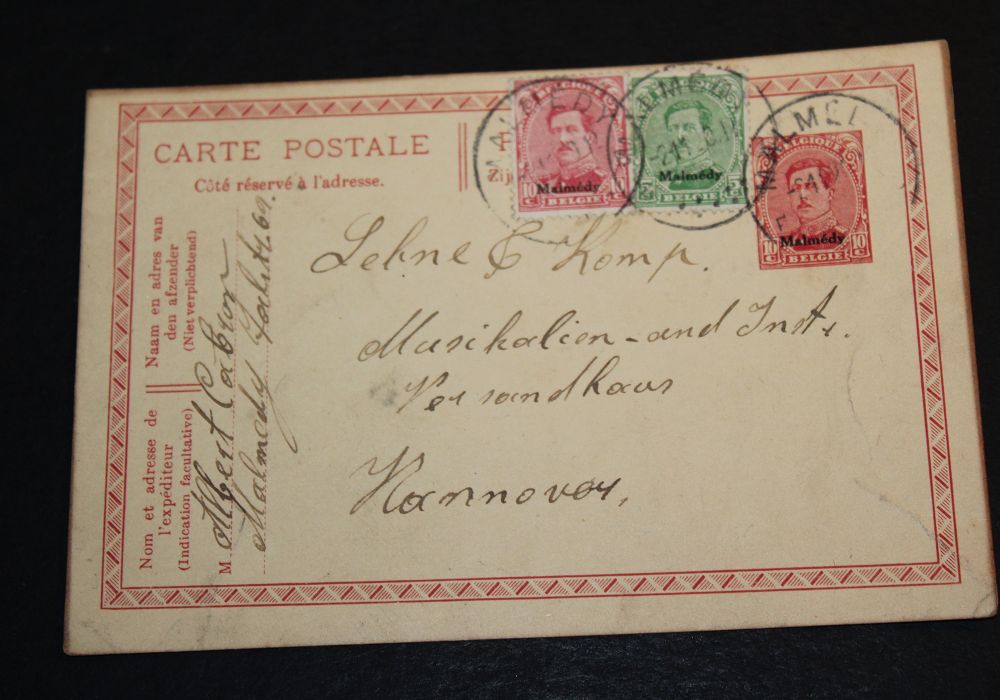 CARTE POSTALE
Côté réservé à l'adresse.
Zij
MALMEDY
BELGIQUE
Malmédy
10 C 10 C
BELGIE
MALMEDY
Malmédy
BELGIE
MALMED
BELGIQUE
Malmédy
10 C 10 C
BELGIE
Naam en adres van
den afzender
(Niet verplichtend)
Nom et adresse de
l'expéditeur
(Indication facultative)
M Albert
Malmedy 69.
& Komp.
Musikalien-and Inst.
Versandhaus
Hannover,